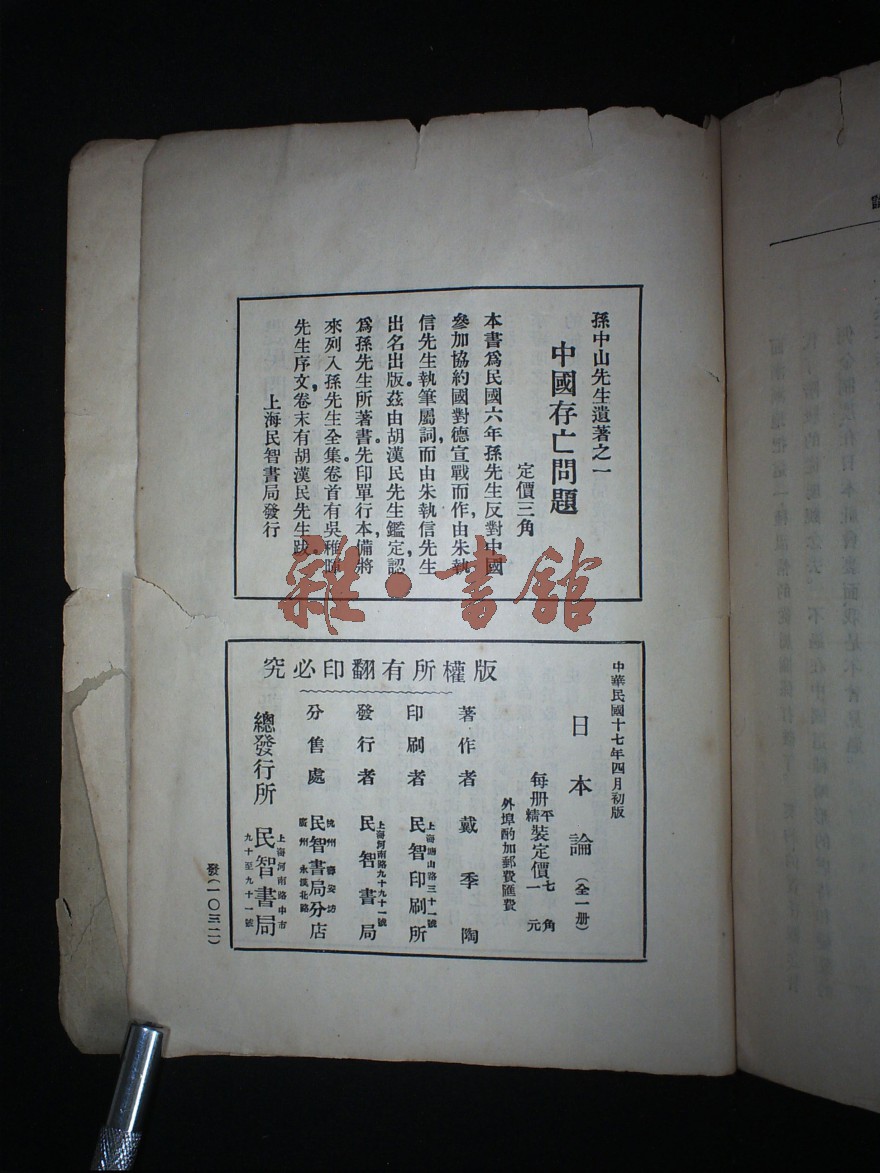 孫中山先生遺著之一
中國存亡問題
定價三角
本書爲民國六年孫先生反對中國
參加協約國對德宣戰而作由朱執
信先生執筆屬詞，而由朱執信先生
出名出版。茲由胡漢民先生鑑定，認
爲孫先生所著書。先印單行本，備將
來列入孫先生全集。卷首有吳稚暉
先生序文，卷末有胡漢民先生跋。
上海民智書局發行
雜·書館
版權所有翻印必究
中華民國十七年四月初版
日本論（全一册）
每册平裝定價七角
精一元
外埠酌加郵費匯費
著作者 戴季陶
印刷者 民智印刷所
上海 山路三十一號
發行者 民智書局
上海河南路九十九十一號
分售處 民智書局分店
杭州 壽安坊
廣州 永漢北路
總發行所 民智書局
上海河南路中市
九十至九十一號
發（一〇三二）